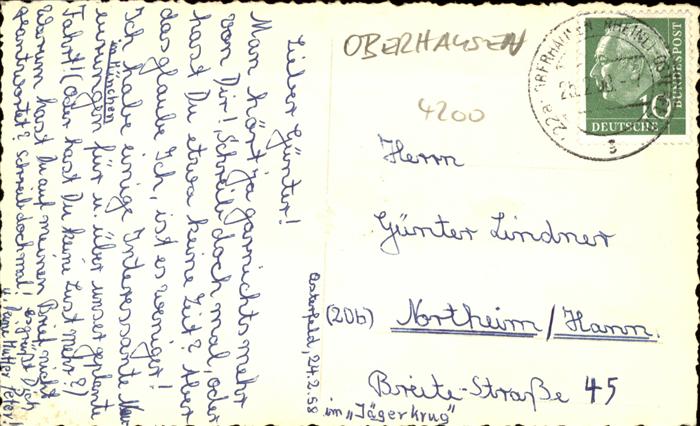 Lieber Günter!
Man hört ja garnichts mehr
von Dir! Schreib doch mal, oder
hast Du etwa keine Zeit? Aber
das glaube Ich, ist es weniger!
Ich habe einige Interessante Neu-
erungen für u. über unser geplante
in München
Fahrt! (Oder hast Du keine Lust mehr?)
Warum hast Du auf meinen Brief nicht
geantwortet? Schreib doch mal! es grüßt Dich
u. Deine Mutter Peter!
Osterfeld, 24.2.58
OBERHAUSEN
4200
22a OBERHAUSEN
DEUTSCHE
BUNDESPOST
10
s
Herrn
Günter Lindner
(20b) Northeim / Hann.
Breite-Straße 45
im „Jägerkrug"